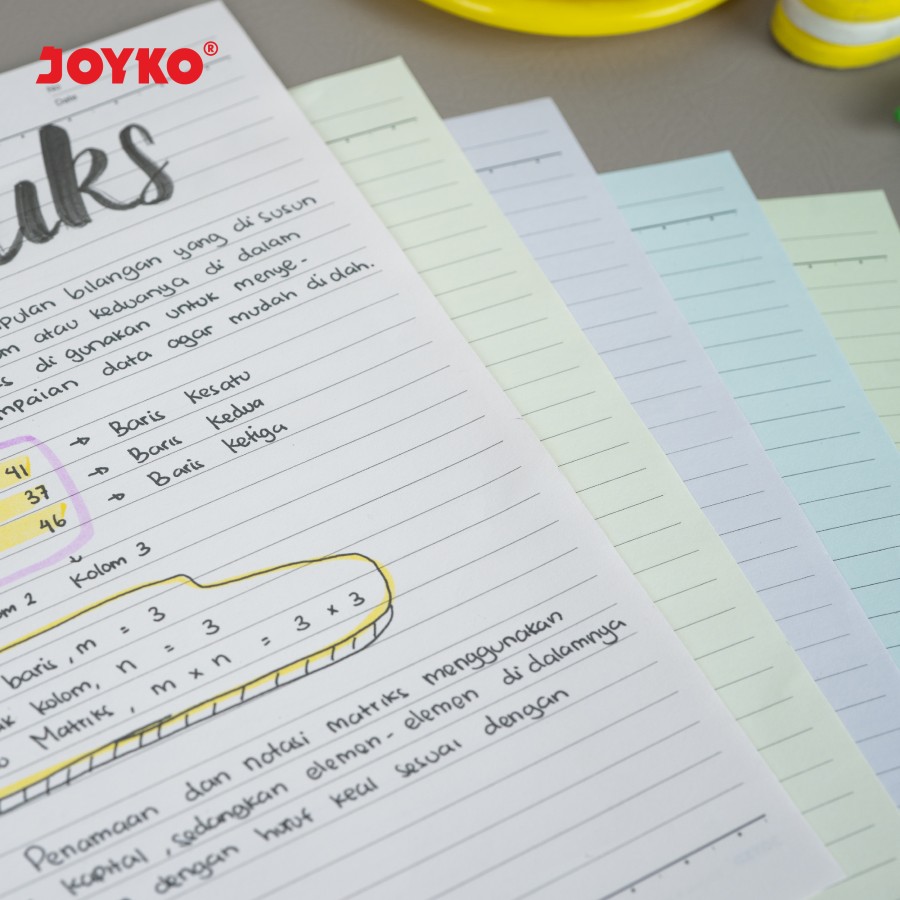 JOYKO®
No
Date
uks
pulan bilangan yang di susun
m atau keduanya di dalam
s di gunakan untuk menye-
mpaian data agar mudah di olah.
41 → Baris Kesatu
37 → Baris Kedua
46 → Baris Ketiga
om 2 Kolom 3
baris, m = 3
ak kolom, n = 3
o Matriks, m x n = 3 x 3
Penamaan dan notasi matriks menggunakan
kapital, sedangkan elemen-elemen di dalamnya
dengan huruf keal sesuai dengan